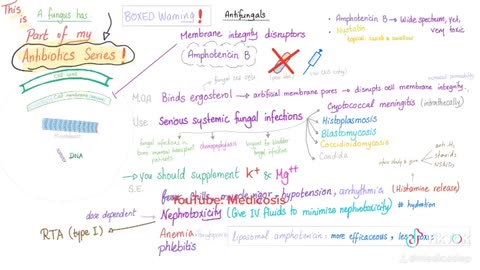 This is
A fungus has
Part of my
Antibiotics Series!
Cell wall
Cell membrane
Ribosome
DNA
BOXED Warning!
Antifungals
Membrane integrity disruptors
Amphotericin B
• Amphotericin B → Wide spectrum, yet, very toxic
• Nystatin
M.O.A: Binds ergosterol → artificial membrane pores → disrupts cell membrane integrity.
Use: Serious systemic fungal infections
Cryptococcal meningitis (intrathecally)
• Histoplasmosis
• Blastomycosis
• Coccidioidomycosis
• Candida
fungal infections in bone marrow transplant patients
irrigant for bladder fungal infection
→ you should supplement K+ & Mg++
S.E.
fever, chills, muscle rigor, hypotension, arrhythmia (Histamine release)
anti-H1
steroids
NSAIDs
YouTube: Medicosis
dose dependent
Nephrotoxicity (Give IV fluids to minimize nephrotoxicity) # hydration
RTA (type I)
Anemia
phlebitis
liposomal amphotericin: more efficacious, less toxic